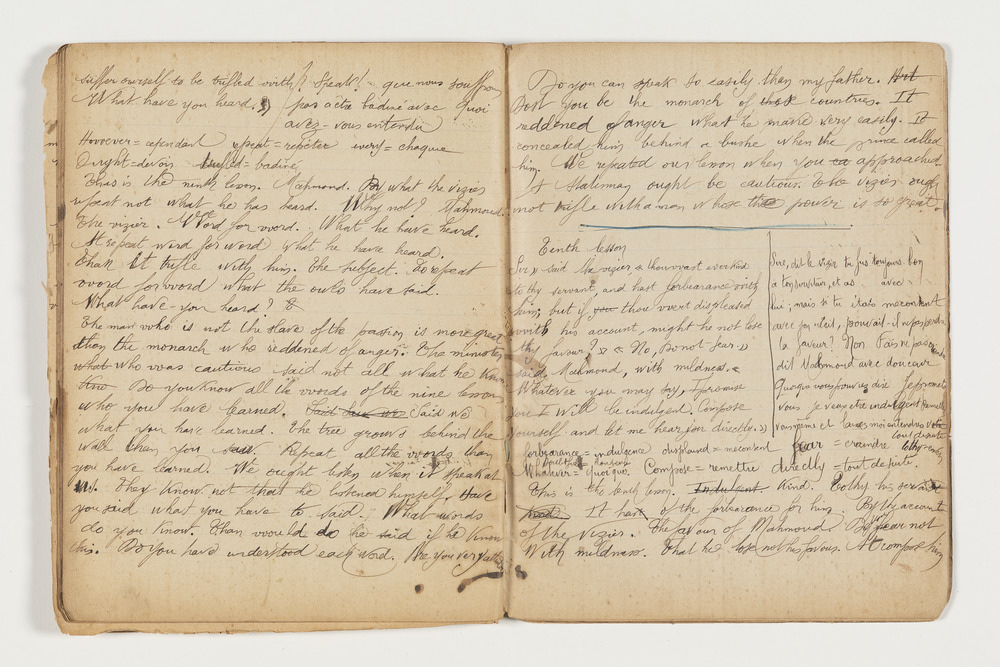 suffer ourself to be trifled with? Speak! = que nous souffron
What have you heard. » pas acte badine avec Quoi
avez-vous entendu
Hovvever = cependant repeat = repeter every = chaque
Ought = devoir trufled = badiné
This is the ninth leson. Mahmond. By what the vizier
repeat not what he has heard. Why not? Mahmoud.
The vizier. Word for vvord. What he have heard.
At repeat word for word what he have heard.
Than It trifle with him. The subject. To repeat
vvord for vvord what the owls have said.
What have you heard?
The man vvho is not the slave of the passion is more great
then the monarch who reddened of anger. The minister
what who vvas cautious said not all what he knew
Know Do you know all the vvords of the nine lesson
who you have learned. Said we
what you have learned. The tree grows behind the
wall than you said. Repeat all the vvords than
you have learned. We ought listen when it speak at
us. They know not that he listened himself. Have
you said what you have to said. What words
do you know. Than vvould do he said if he know
this. Do you have understood each word. Are you very
Do you can speak so easily then my father. But
Dost you be the monarch of those countries. It
reddened of anger what he marie very easily. It
concealed him behind a bushe when the prince called
him. We repeated our lesson when you approached
A Statesman ought be cautious. The vizier ough
not trifle with a man whose the power is so great.
Tenth lesson
Sir, » said the vizier, « thou wast ever kind
to thy servant, and hast forbearance with
him; but if thou wert displeased
vvith his account, might he not lose
thy favour? » « No, Do not fear »
said Mahmond, with mildness. «
Whatever you may say, I promise
you I will be indulgent. Compose
yourself and let me hear for directly. »
Sire, dit le vizir tu fus toujours bon
a ton serviteur, et as avec
lui; mais si tu étais mécontent
avec son récit, pouvait-il ne pas perdre
ta faveur? Non Fais ne pas craindre
dit Mahmond avec douceur
Quoique vous pouvez dire Je promets
vous je veux etre indulgent Remettez
vous meme et laissez moi entendre votre
tout de suite
forbearance = indulgence displeased = mecontent fear = craindre
Whatever = quoique. Compose = remettre directly = tout de suite.
This is the tenth leson. Indulgent. Kind. To thy servant
It hast of the forbearance for him. By thy account
of the vizier. The favour of Mahmoud. By fear not
With mildness. That he lose not his favour. At compose him